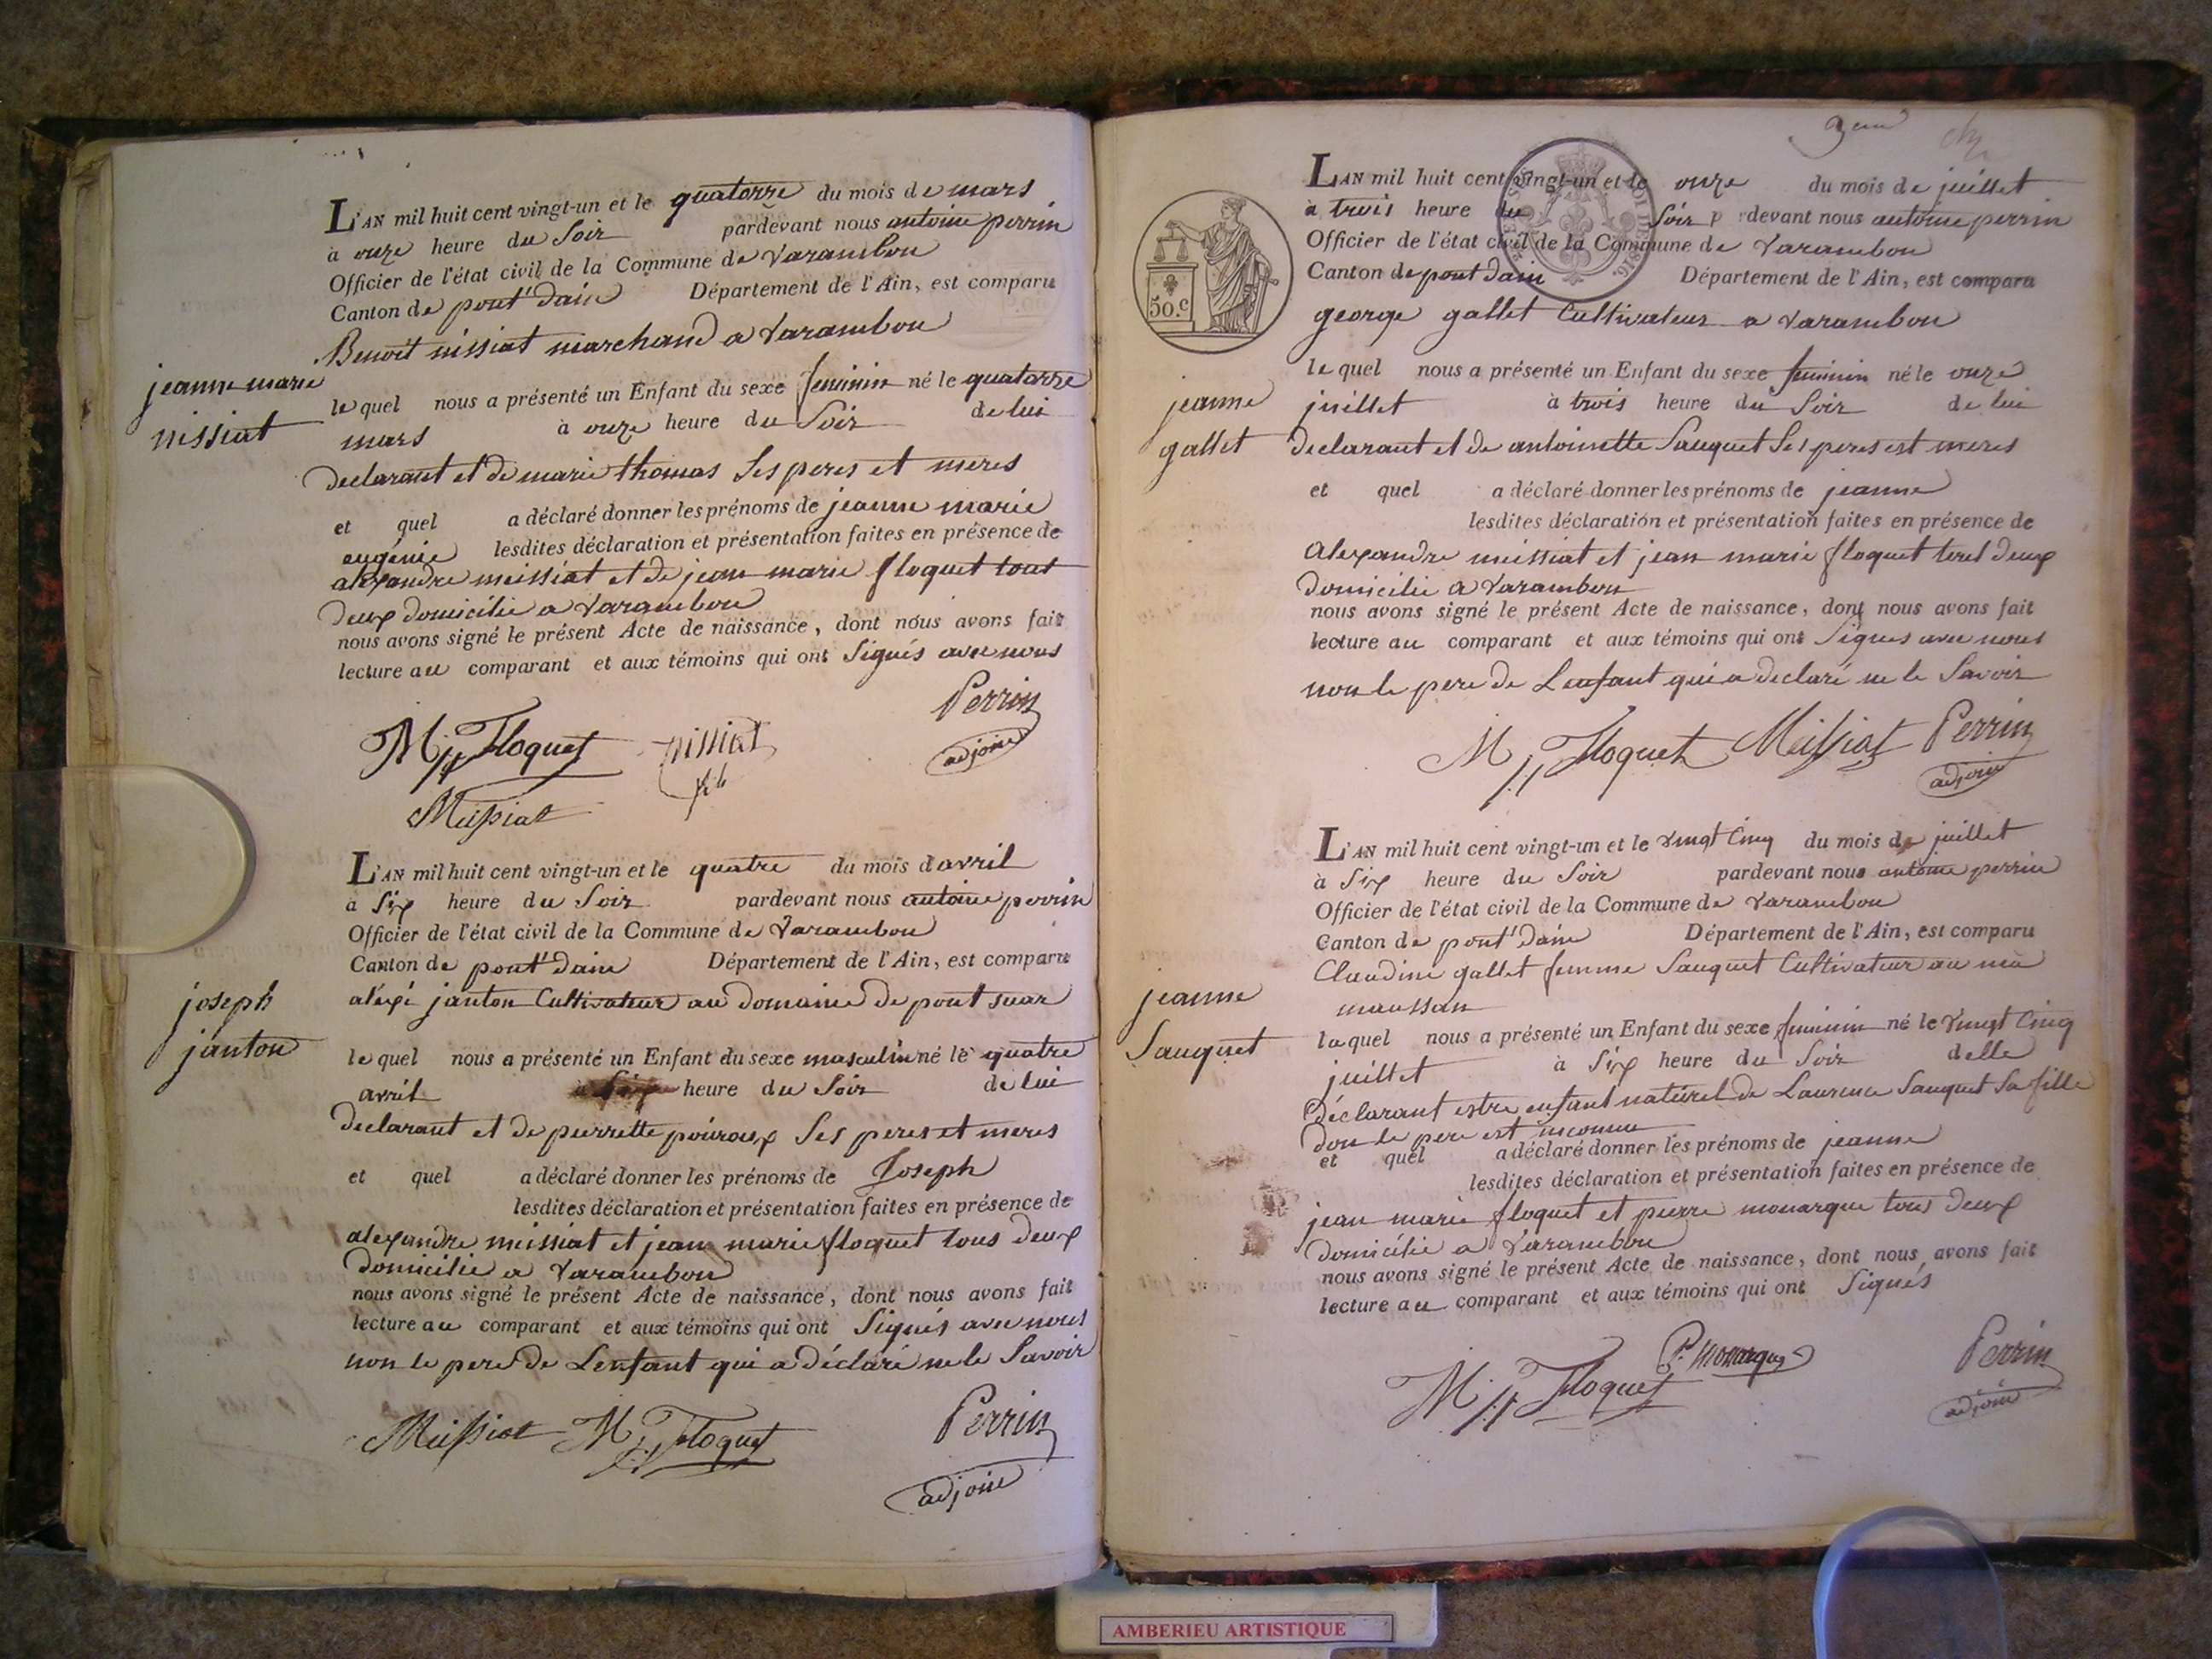 L'AN mil huit cent vingt-un et le quatorze du mois de mars
à onze heure du Soir pardevant nous antoine perrin
Officier de l'état civil de la Commune de Varambon
Canton de pont'dain Département de l'Ain, est comparu
Benoit nissiat marchand a Varambon
jeanne marie
nissiat
le quel nous a présenté un Enfant du sexe feminin né le quatorze
mars à onze heure du Soir de lui
declarant et de marie thomas Ses peres et meres
et quel a déclaré donner les prénoms de jeanne marie
eugénie lesdites déclaration et présentation faites en présence de
alexandre meissiat et de jean marie floquet tout
deux domicilie a Varambon
nous avons signé le présent Acte de naissance, dont nous avons fait
lecture au comparant et aux témoins qui ont Signés avec nous
Perrin
M Floquet nissiat adjoin
Meissiat
L'AN mil huit cent vingt-un et le quatre du mois d'avril
à Six heure du Soir pardevant nous antoine perrin
Officier de l'état civil de la Commune de Varambon
Canton de pont'dain Département de l'Ain, est comparu
joseph
janton
alexi janton Cultivateur au domaine de pont suar
le quel nous a présenté un Enfant du sexe masculin né le quatre
avril à Six heure du Soir de lui
declarant et de pierrette poiroux Ses peres et meres
et quel a déclaré donner les prénoms de Joseph
lesdites déclaration et présentation faites en présence de
alexandre meissiat et jean marie floquet tous deux
domicilie a Varambon
nous avons signé le présent Acte de naissance, dont nous avons fait
lecture au comparant et aux témoins qui ont Signés avec nous
non le pere de Lenfant qui a déclaré ne le Savoir
Meissiat M Floquet Perrin
adjoin
L'AN mil huit cent vingt-un et le onze du mois de juillet
à trois heure du Soir p rdevant nous antoine perrin
Officier de l'état civil de la Commune de Varambon
Canton de pont dain Département de l'Ain, est comparu
50.c
george gallet Cultivateur a Varambon
jeanne
gallet
le quel nous a présenté un Enfant du sexe feminin né le onze
juillet à trois heure du Soir de lui
declarant et de antoinette Sauquet Ses peres est meres
et quel a déclaré donner les prénoms de jeanne
lesdites déclaration et présentation faites en présence de
alexandre meissiat et jean marie floquet tous deux
domicilie a Varambon
nous avons signé le présent Acte de naissance, dont nous avons fait
lecture au comparant et aux témoins qui ont Signes avec nous
non le pere de Lenfant qui a declaré ne le Savoir
M Floquet Meissiat Perrin
adjoin
L'AN mil huit cent vingt-un et le vingt Cinq du mois de juillet
à Six heure du Soir pardevant nous antoine perrin
Officier de l'état civil de la Commune de Varambon
Canton de pont'dain Département de l'Ain, est comparu
Claudine gallet femme Sauquet Cultivateur au
maussan
jeanne
Sauquet
la quel nous a présenté un Enfant du sexe feminin né le vingt Cinq
juillet à Six heure du Soir delle
déclarant estre enfant naturel de Laurence Sauquet Sa fille
don le pere est inconnu
et quel a déclaré donner les prénoms de jeanne
lesdites déclaration et présentation faites en présence de
jean marie floquet et pierre monarque tous deux
domicilie a Varambon
nous avons signé le présent Acte de naissance, dont nous avons fait
lecture au comparant et aux témoins qui ont Signés
M Floquet P. monarque Perrin
adjoin
AMBERIEU ARTISTIQUE